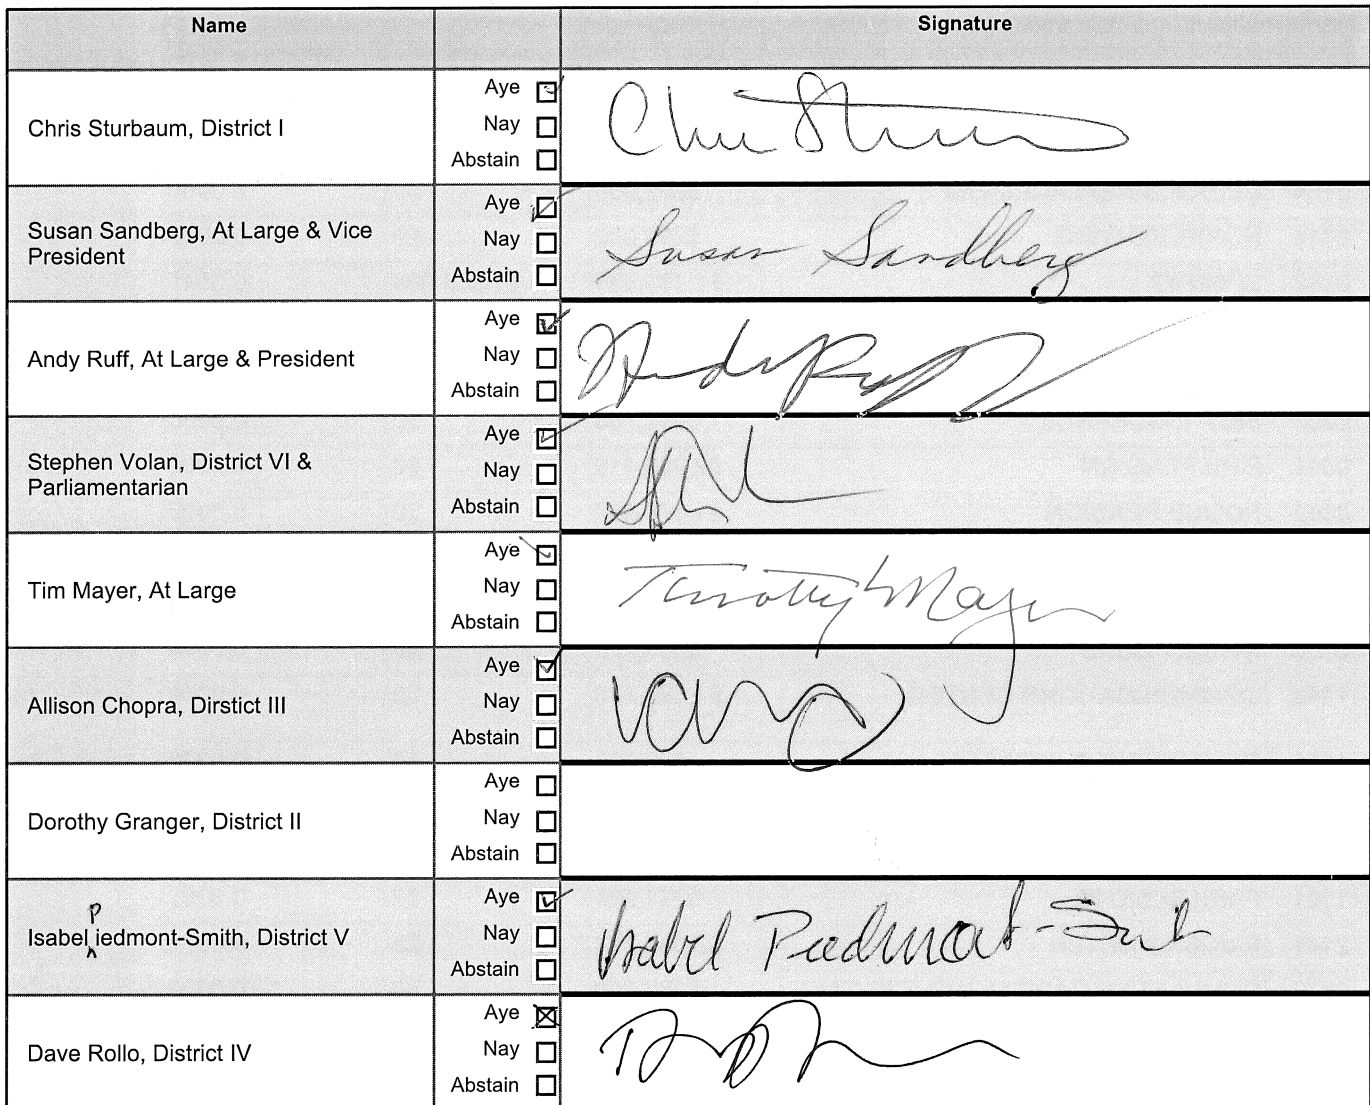 Name Signature
Chris Sturbaum, District I
Aye
Nay
Abstain
Susan Sandberg, At Large & Vice
President
Aye
Nay
Abstain
Susan Sandberg
Andy Ruff, At Large & President
Aye
Nay
Abstain
Stephen Volan, District VI &
Parliamentarian
Aye
Nay
Abstain
Tim Mayer, At Large
Aye
Nay
Abstain
Timothy Mayer
Allison Chopra, Dirstict III
Aye
Nay
Abstain
Dorothy Granger, District II
Aye
Nay
Abstain
P
Isabel iedmont-Smith, District V
Aye
Nay
Abstain
Isabel Piedmont-Smith
Dave Rollo, District IV
Aye
Nay
Abstain